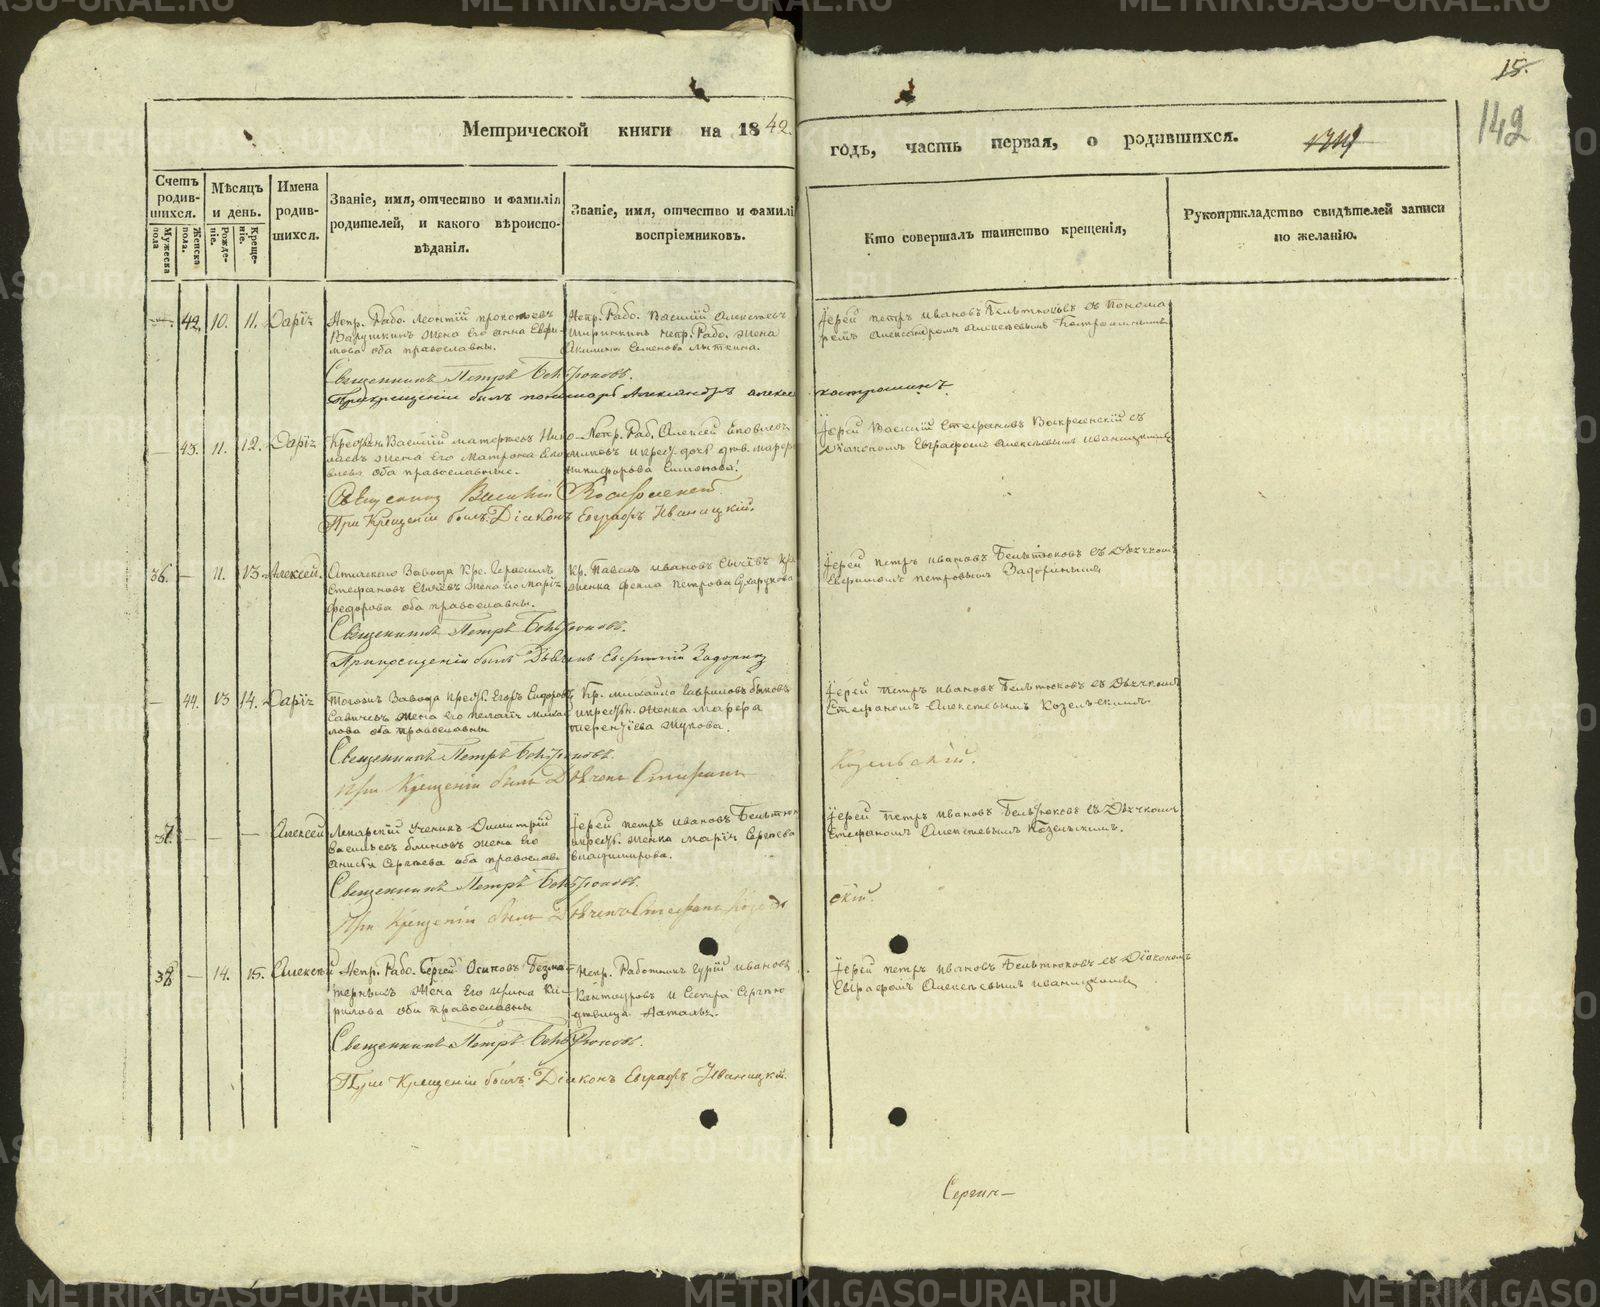 15.
142
Метрической книги на 1842.
годъ, часть первая, о родившихся.
Счетъ родившихся.
Мужеска пола
Женска пола.
Мѣсяцъ и день.
Рожденіе.
Крещеніе.
Имена родившихся.
Званіе, имя, отчество и фамилія родителей, и какого вѣроисповѣданія.
Званіе, имя, отчество и фамилі воспріемниковъ.
Кто совершалъ таинство крещенія,
Рукоприкладство свидѣтелей записи по желанію.
42. 10. 11. Дарія
Непр. Рабо. Леонтій прокопьевъ
жена его анна Ефи-
мова оба православны.
Непр. Рабо. Василій Алексѣевъ
Ширинкинъ Непр. Рабо. жена
Акилина Семенова
Іерей петръ ивановъ Бельтюковъ съ понома
ремъ Александромъ Алексѣевымъ Костроминымъ
Священникъ Петръ Бельтюковъ.
При крещеніи былъ пономарь Александръ алексѣев костроминъ
43. 11. 12. Дарія
Василій
жена его Матрона
оба православные.
Непр. Раб. Алексей
никифорова
Іерей Василій Стефановъ Воскресенскій съ
Діакономъ Евграфомъ Алексѣевымъ иваницкимъ
Священник Василій Воскресенскій
При Крещеніи былъ: Діаконъ Евграфъ Иваницкій.
36. — 11. 13. Алексей.
Завода Кре. Герасимъ
Стефановъ Сычевъ жена его марія
федорова оба православны.
Кр. Павелъ ивановъ Сычевъ кр
женка фекла петрова Сухарукова
Іерей петръ ивановъ Бельтюковъ съ Дьячкомъ
Евфимомъ петровымъ Задоринымъ
Священникъ Петръ Бельтюковъ.
При крещеніи былъ Дьячекъ Евфимій Задоринъ
— 44. 13 14. Дарія
Завода крест. Егоръ Сидоровъ
Савичевъ жена его пелагія михай
лова оба православны
Кр. михайло гавриловъ быковъ
и крестьян. женка марфа
терентіева жукова.
Іерей петръ ивановъ Бельтюковъ съ Дьячкомъ
Стефаномъ Алексѣевымъ Козельскимъ.
Священникъ Петръ Бельтюковъ.
При Крещеніи былъ Дьячекъ Стефанъ Козельскій.
37. — — — Алексей
Лекарскій Ученикъ Димитрій
Васильевъ блиновъ жена его
Анисья Сергѣева оба православ.
Іерей петръ ивановъ Бельтюк
и крест. женка марія Сергѣева
владимирова.
Іерей петръ ивановъ Бельтюковъ съ Дьячкомъ
Стефаномъ Алексѣевымъ Козельскимъ.
Священникъ Петръ Бельтюковъ.
При Крещеніи былъ Дьячекъ Стефанъ Козельскій.
38 — 14. 15. Алексѣй
Непр. Рабо. Сергей Осиповъ Безма-
терныхъ жена его ирина Ки-
рилова оба православны
Непр. Работникъ гурій ивановъ
Кантауровъ и Сестра Сергѣю
девица Наталья.
Іерей петръ ивановъ Бельтюковъ съ Діакономъ
Евграфомъ Алексѣевымъ иваницкимъ
Священникъ Петръ Бельтюковъ.
При Крещеніи былъ: Діаконъ Евграфъ Иваницкій.
METRIKI.GASO-URAL.RU